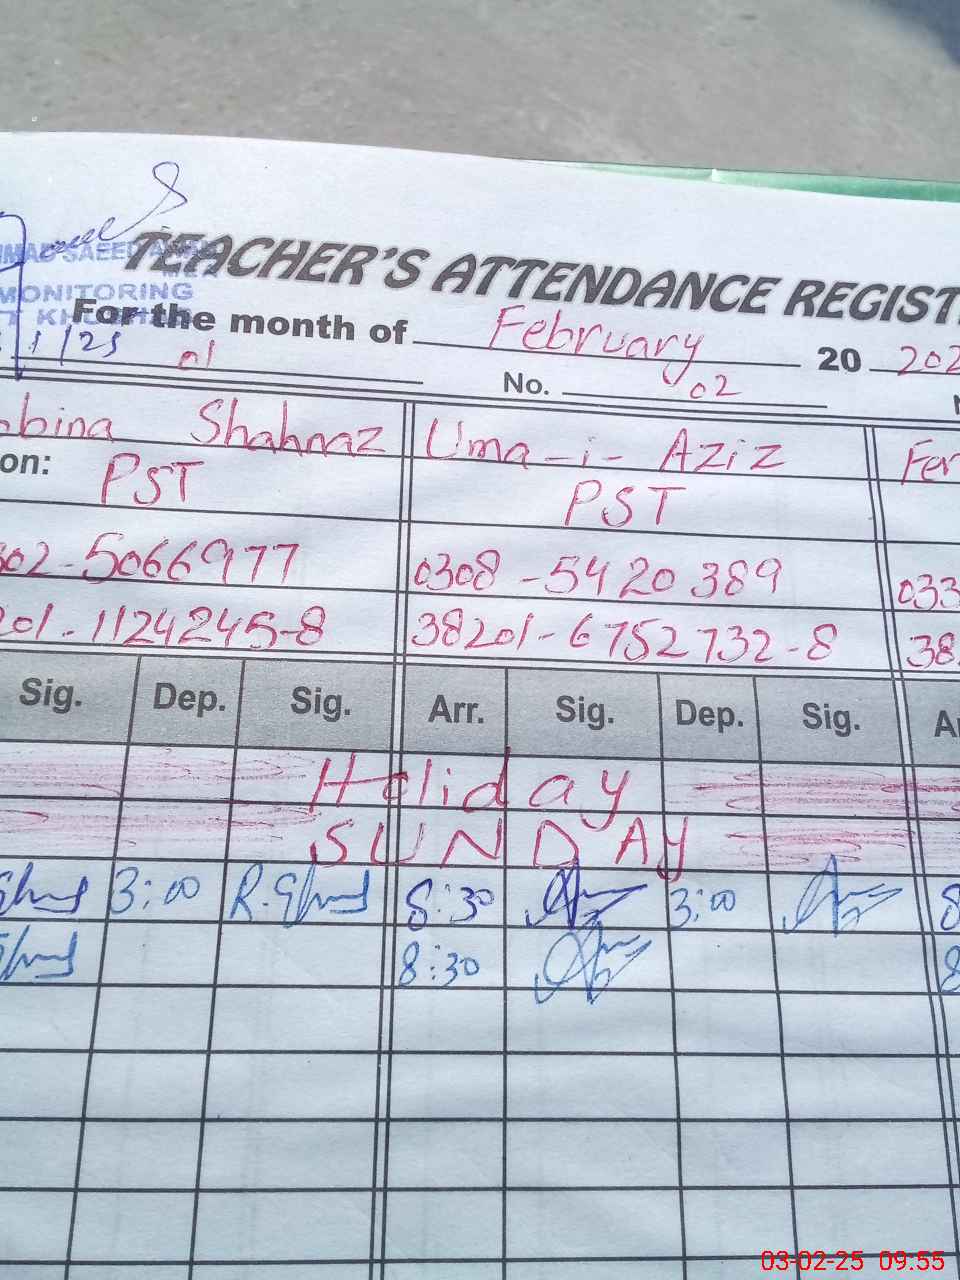 TEACHER'S ATTENDANCE REGIST
MONITORING
For the month of February 20 202
01
No. 02
bina Shahnaz Uma-i- Aziz Fer
on: PST PST
302-5066977 0308-5420389 033
201-1124245-8 38201-6752732-8 38
Sig. Dep. Sig. Arr. Sig. Dep. Sig.
Holiday
SUNDAY
3:00 8:30 3:00 8
8:30 8
03-02-25 09:55